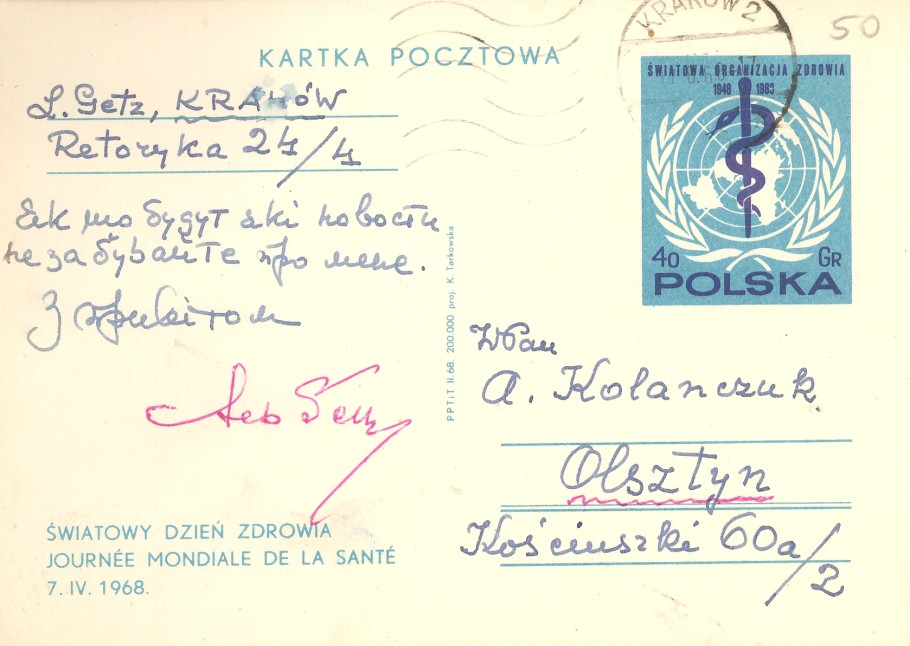 KRAKÓW 2
50
KARTKA POCZTOWA
L. Getz, KRAKÓW
Retoryka 24/4
Як шо будут які новости
не забувайте про мене.
З привітом
Лев Ґец
ŚWIATOWY DZIEŃ ZDROWIA
JOURNÉE MONDIALE DE LA SANTÉ
7. IV. 1968.
PPTiT II.68. 200.000 proj. K. Tarkowska
ŚWIATOWA ORGANIZACJA ZDROWIA
1948 1968
40 GR
POLSKA
WPan
A. Kolanczuk
Olsztyn
Kościuszki 60a/2